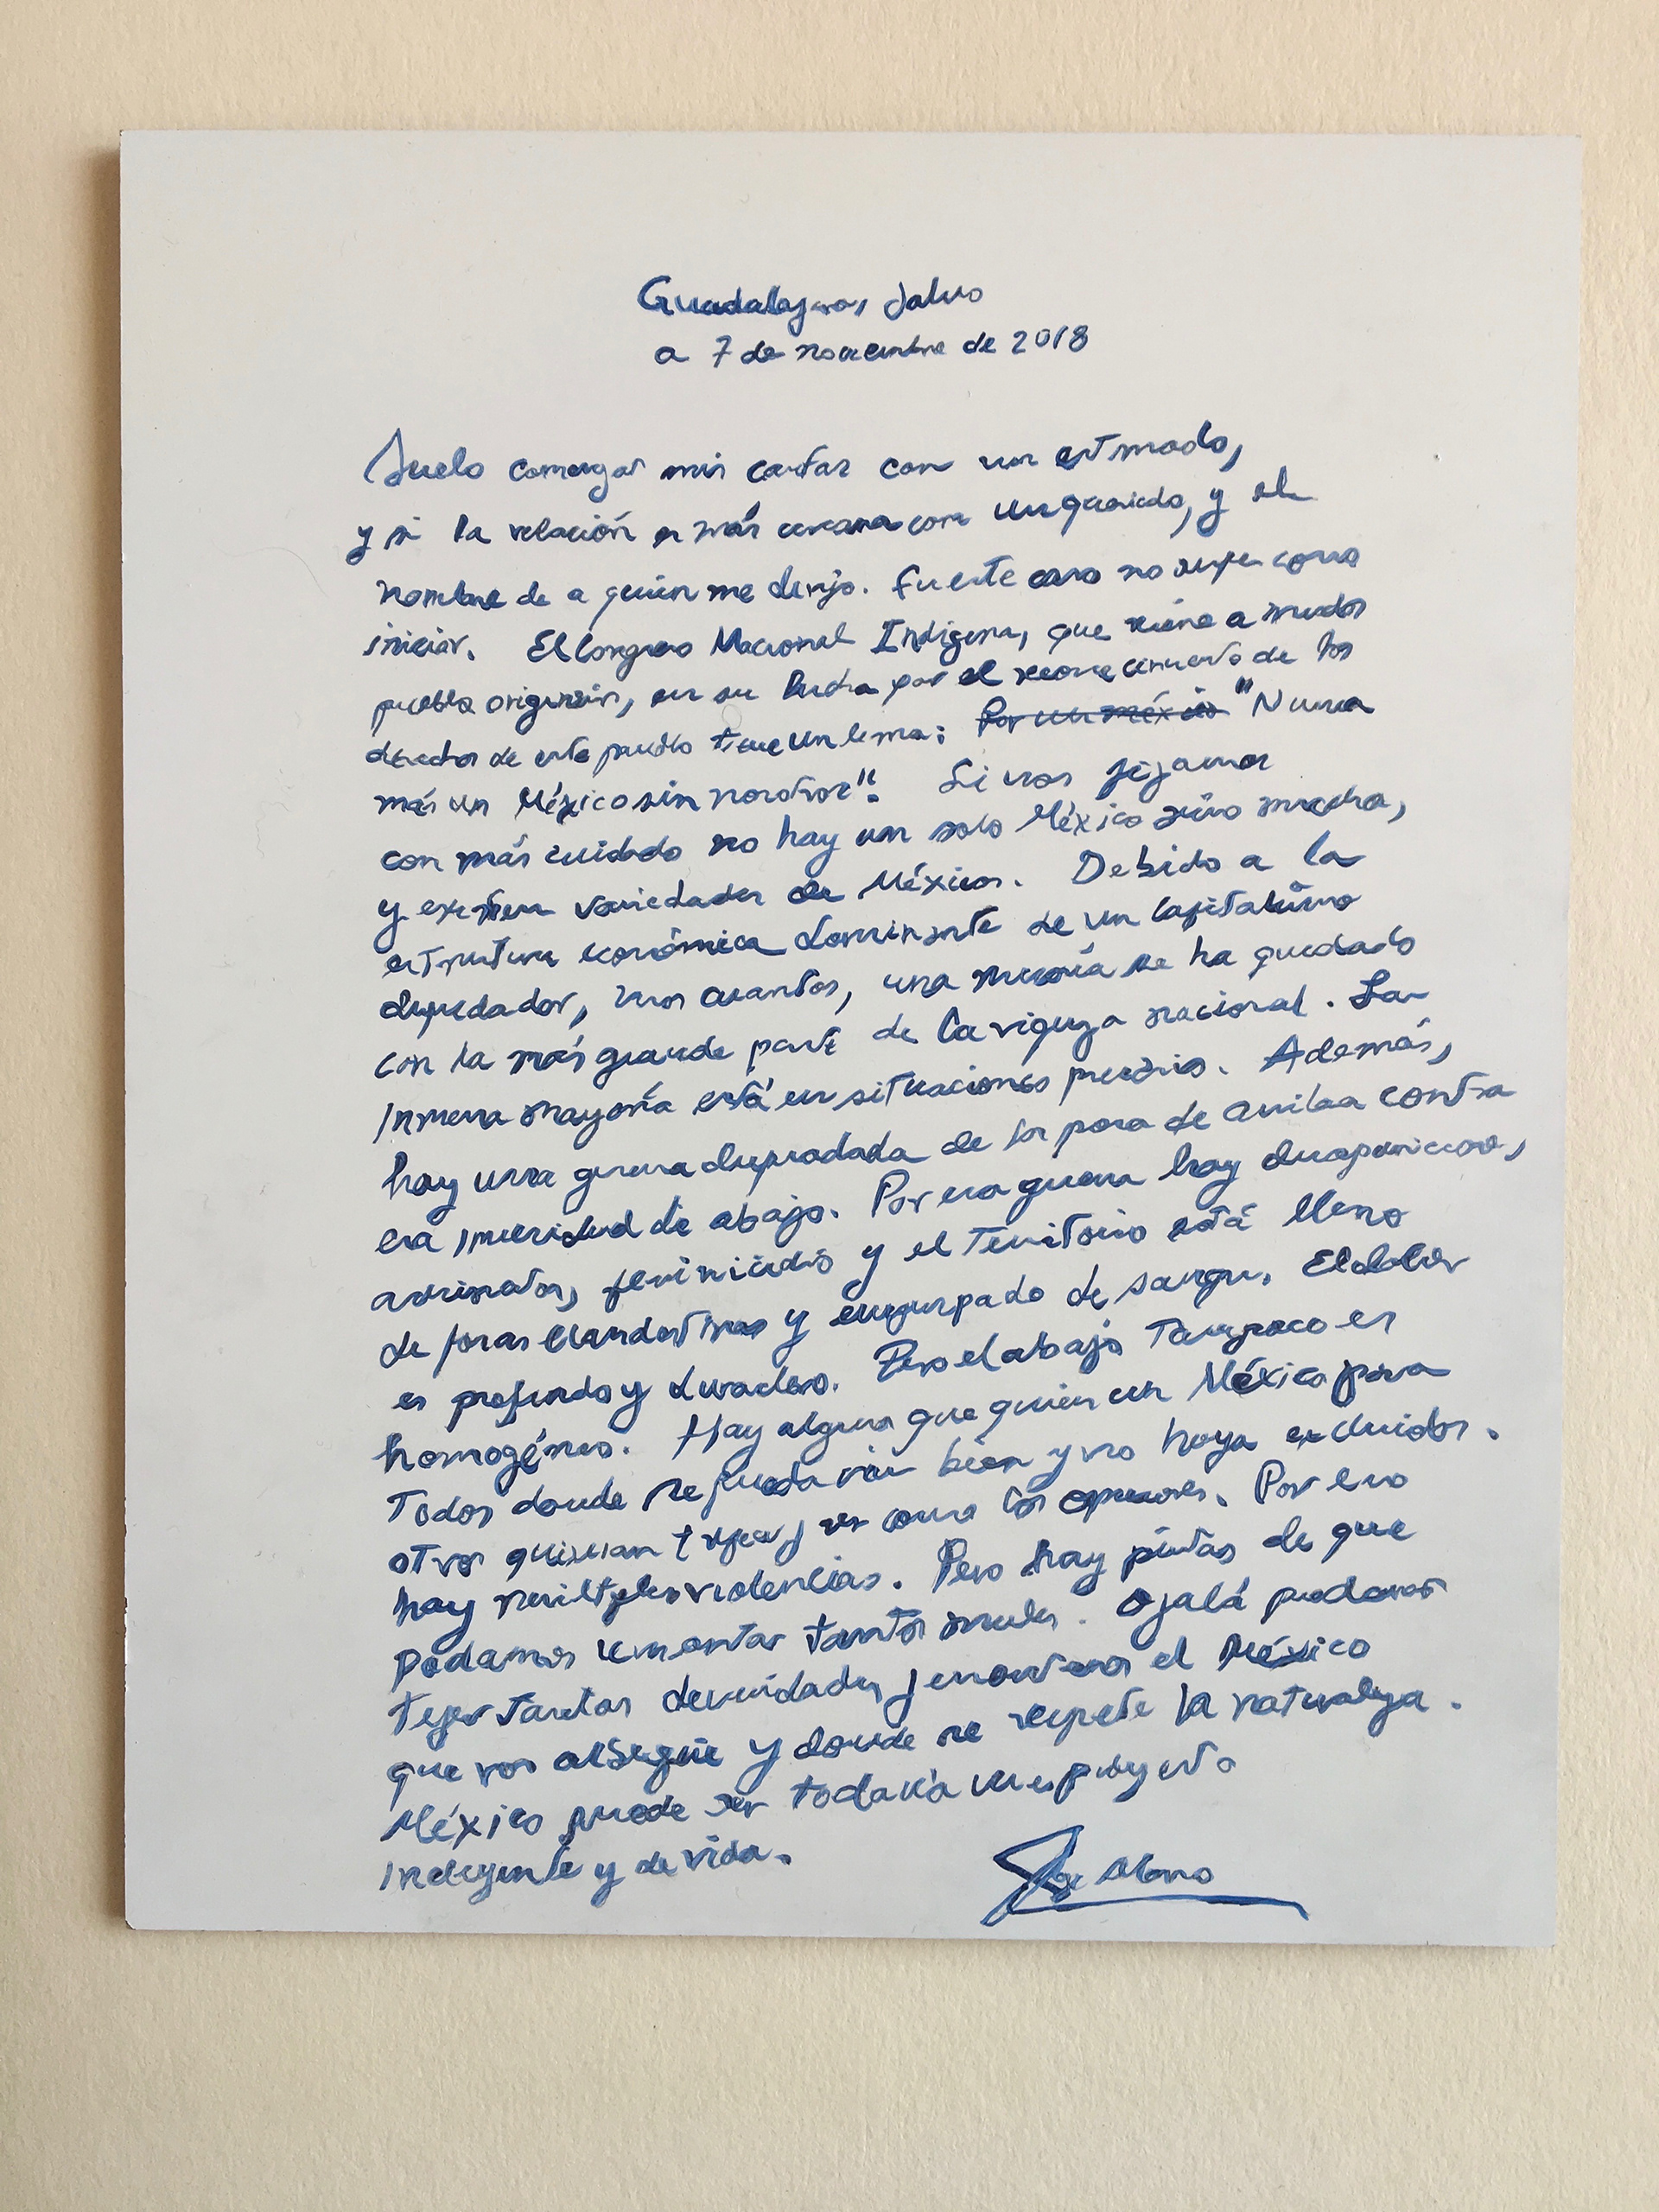 Guadalajara, Jalisco
a 7 de noviembre de 2018
Suelo comenzar mis cartas con un estimado,
y si la relación es más cercana con un querido, y el
nombre de a quien me dirijo. En este caso no supe como
iniciar. El Congreso Nacional Indígena, que reúne a muchos
pueblos originarios, en su lucha por el reconocimiento de los
derechos de este pueblo tiene un lema: Por un méxico "Nunca
más un México sin nosotros". Si nos fijamos
con más cuidado no hay un solo México sino muchos,
y existen variedades de Méxicos. Debido a la
estructura económica dominante de un capitalismo
depredador, unos cuantos, una minoría se ha quedado
con la más grande parte de la riqueza nacional. La
inmensa mayoría está en situaciones precarias. Además,
hay una guerra despiadada de los de arriba contra
esa inmensidad de abajo. Por esa guerra hay desapariciones,
asesinatos, feminicidios y el territorio está lleno
de fosas clandestinas y engurpado de sangre. El dolor
es profundo y duradero. Pero el abajo tampoco es
homogéneo. Hay algunos que quieren un México para
todos donde se pueda vivir bien y no haya excluidos.
otros quisieran trepar y ser como los opresores. Por eso
hay múltiples violencias. Pero hay pintas de que
podamos remontar tantos males. Ojalá podamos
tejer tantas y encontremos el México
que nos alegre y donde se respete la naturaleza.
México puede ser todavía un proyecto
incluyente y de vida.
Jorge Alonso